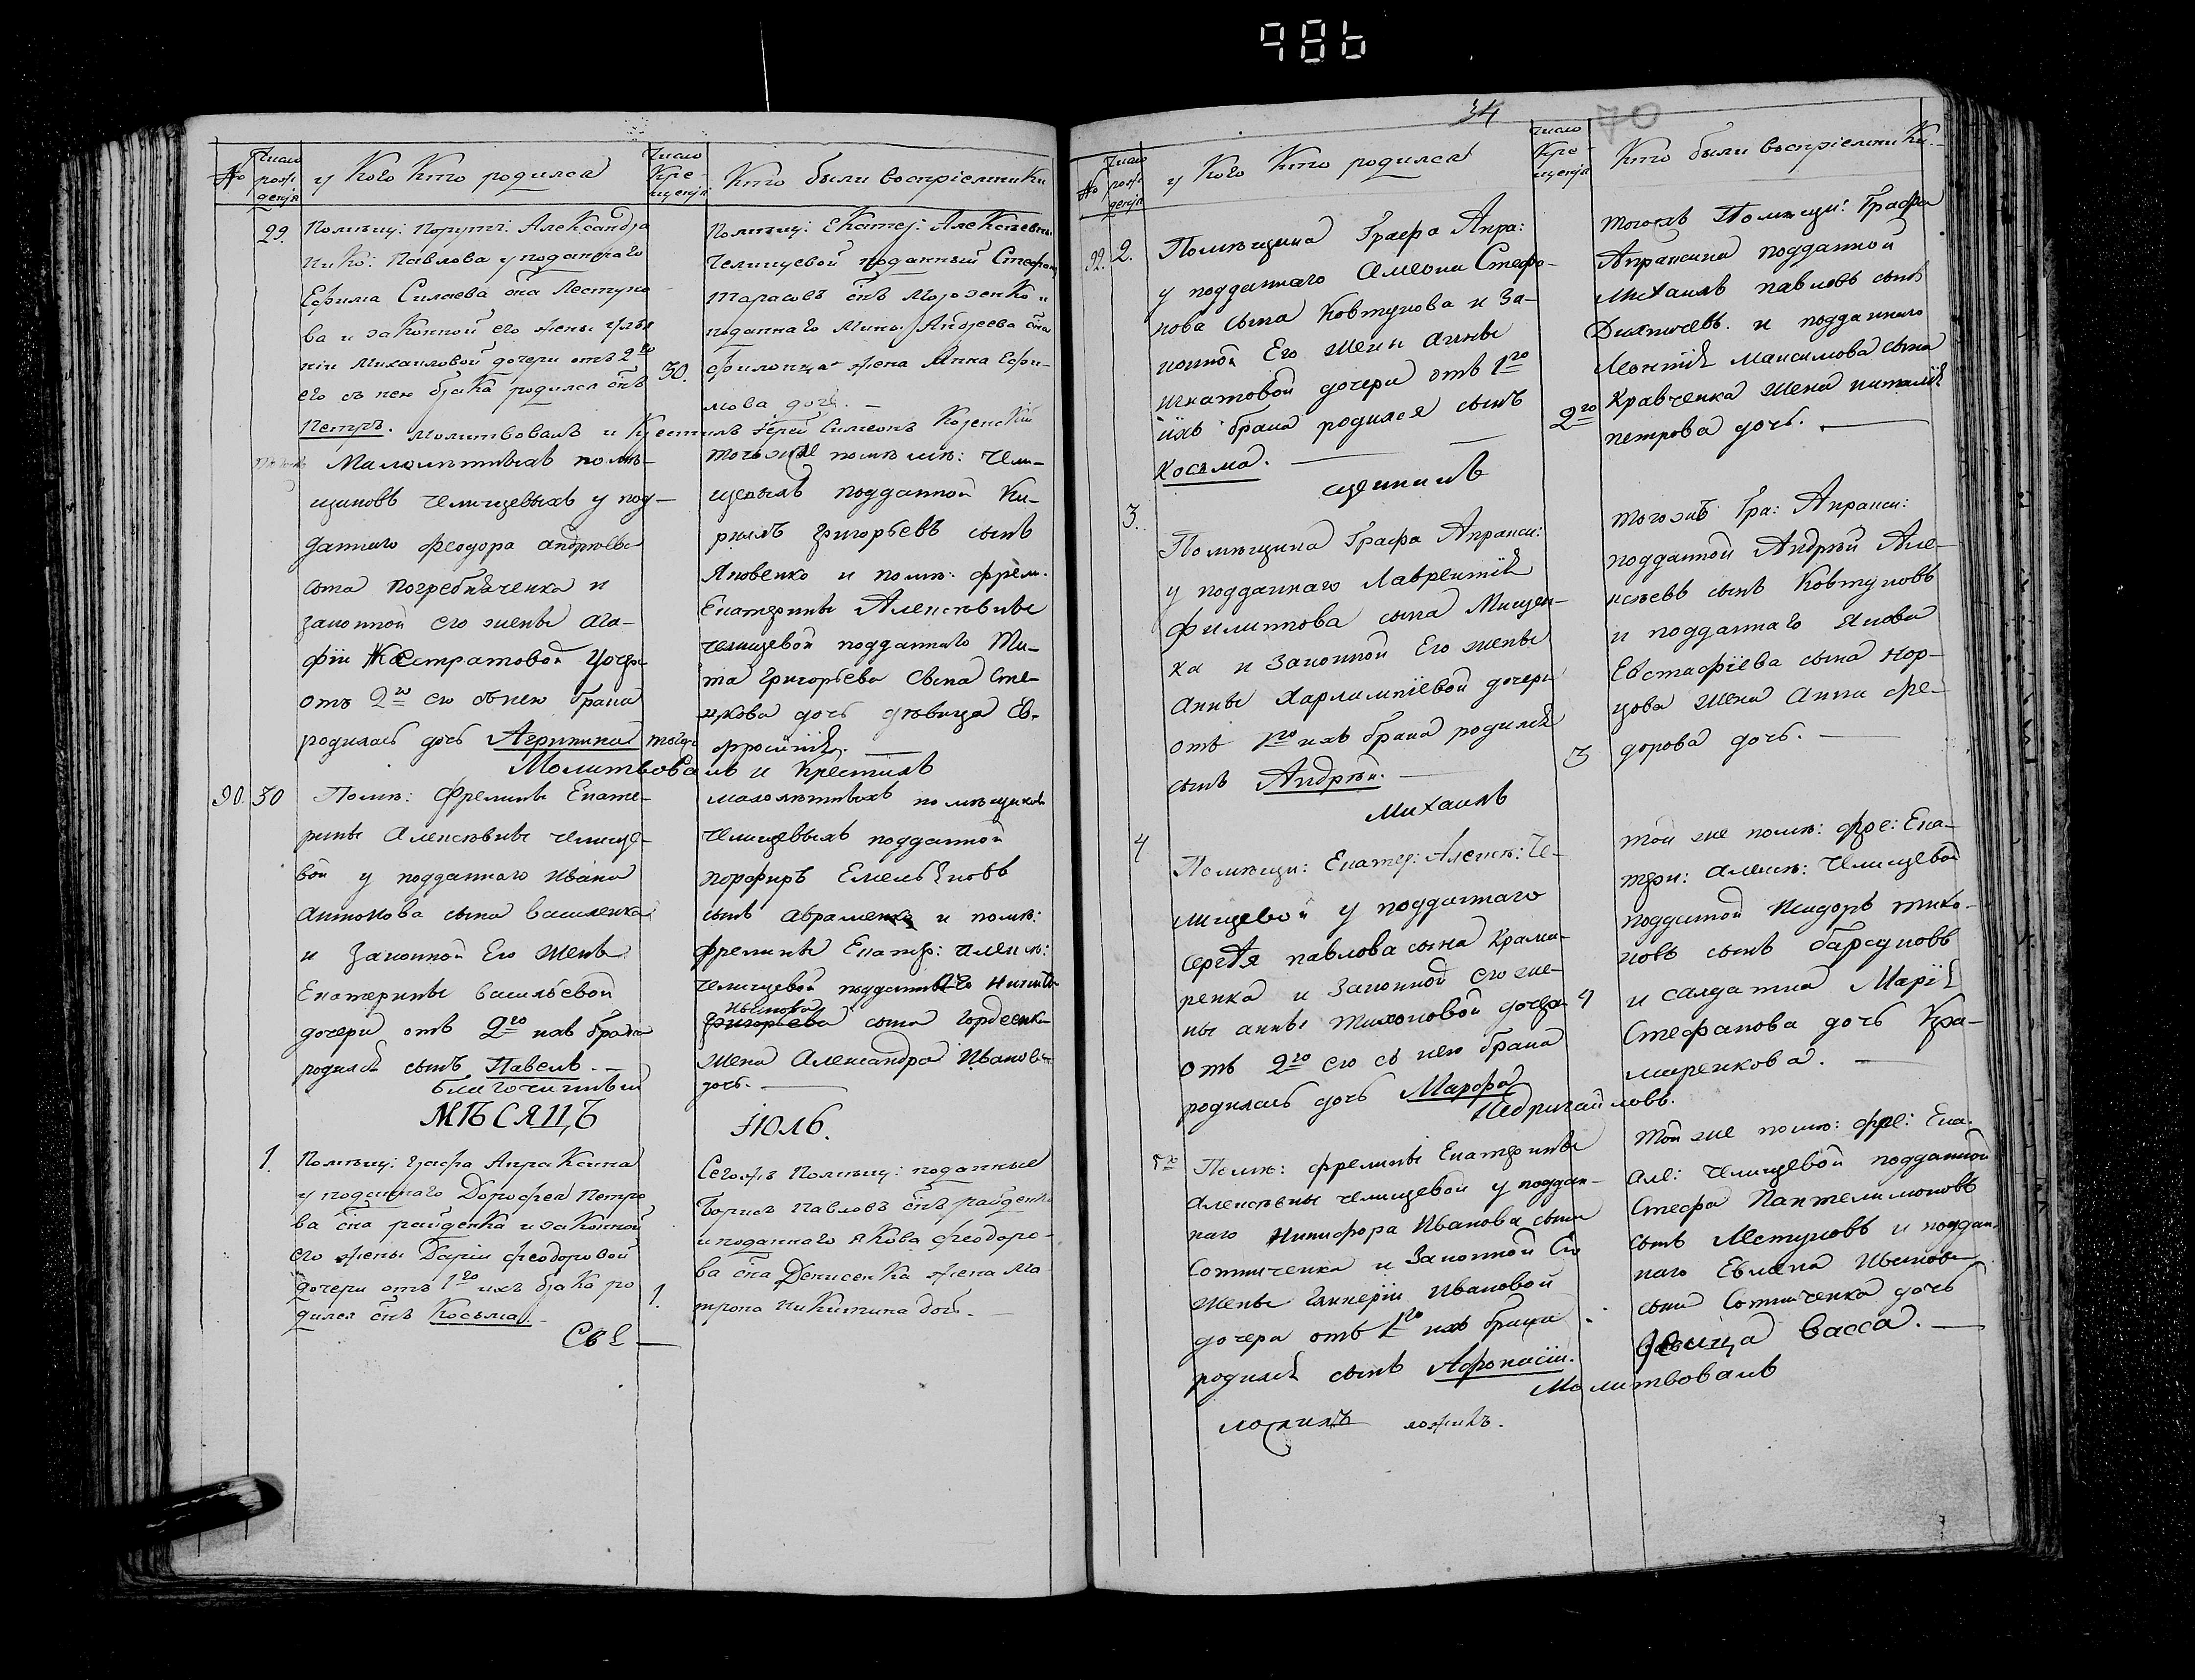 986
№
Число рож: денія
у Кого Кто родился
Число Кре- щенія
Кто были воспріемники
29.
Помѣщ: Порутч: Александра
Ник: Павлова у поданнаго
Ефима Силаева сна Пестуно
ва и законной его жены
Михаиловой дочери отъ 2го
его съ нею брака родился снъ
Петръ. Молитвовалъ и Крестилъ Іерей Симеонъ
30.
Помѣщ: Екатер: Алексѣевны
Челищевой поданный Стефанъ
Тарасовъ снъ Морозенко и
поданнаго Андреева сна
жена Анна Ефи-
мова дочь. —
Малолѣтныхъ помѣ-
щиковъ Челищевыхъ у под-
даннаго Феодора андрѣева
сына Погребняченка и
законной его жены ага-
фіи дочери
отъ 2го его съ нею брака
родилась дочь Агрипина
Молитвовалъ и Крестилъ
тогоже
щевыхъ подданной Ки-
рилъ григорьевъ сынъ
Яковенко и помѣ: фрел.
Екатерины Алексѣвны
челищевой подданнаго Ти-
та Григорьева сына
дочь дѣвица Ев-
фросинія. —
90. 30
Помѣ: Фрелины Екате-
рины Алексѣвны челище-
вой у подданнаго Ивана
Антонова сына василенка
и Законной Его жены
Екатерины васильевой
дочери отъ 2го ихъ брака
родился сынъ Павелъ. —
Благочинный
малолѣтныхъ помѣщиковъ
челищевыхъ подданной
порфиръ Емельяновъ
сынъ авраменко и помѣ:
фрелины Екатер: алексѣ:
челищевой подданнаго Никиты
Иванова
григорьева сына Гордеенка
жена Александра Иванова
дочь. —
МѢСЯЦЪ
ІЮЛЬ.
1.
Помѣщ: графа Апраксина
у поданнаго Дорофея Петро
ва сна райденка и законной
его жены Даріи феодоровой
дочери отъ 1го ихъ брака ро
дился снъ Косьма. —
Свя —
1.
Сегожъ Помѣщ: поданные
Борисъ Павловъ снъ райденко
и поданнаго Якова феодоро-
ва сна Денисенка жена Ма
трона Никитина дочь. —
34
70
№
Число рож: денія
у Кого Кто родился
Число Кре- щенія
Кто были воспріемники.
92. 2.
Помѣщика Графа Апра:
у подданнаго Симеона Стефа-
нова сына Ковтунова и За-
конной Его жены анны
игнатовой дочери отъ 1го
ихъ брака родился сынъ
Косьма. —
щенникъ
2го
тогожъ Помѣщи: Графа
Апраксина подданной
Михаилъ павловъ сынъ
и подданнаго
Леонтія Максимова сына
Кравченка жена наталія
петрова дочь. —
3.
Помѣщика Графа Апракси:
у подданнаго Лаврентія
филиппова сына Мищен-
ка и Законной Его жены
анны Харлампіевой дочери
отъ 1го ихъ брака родился
сынъ Андрѣй. —
Михаилъ
3
тогожъ Гра: Апракси:
подданной Андрѣй Але-
ксѣевъ сынъ Ковтуновъ
и подданнаго Якова
Евстафіева сына Кор-
цова жена Анна фео-
дорова дочь. —
4
Помѣщи: Екатер: Алексѣ: Че-
лищевой у подданнаго
сергѣя павлова сына Крама-
ренка и Законной его же-
ны анны Тихоновой дочери
отъ 2го его съ нею брака
родилась дочь Марфа
Недригайловъ.
4
той же помѣ: фре: Ека-
тери: алексѣ: Челищевой
подданной Исидоръ тихо-
новъ сынъ
и салдатка Марія
Стефанова дочь Кра-
маренкова. —
5го
Помѣ: фрелины Екатерины
алексѣвны челищевой у поддан-
наго Никифора Иванова сына
Сотниченка и Законной Его
жены Гликеріи Ивановой
дочери отъ 1го ихъ брака
родился сынъ Афонасій.
Молитвовалъ
той же помѣ: фре: Ека.
але: челищевой подданной
Стефа Пантелимоновъ
сынъ Пестуновъ и поддан
наго Евлампа Иванова
сына Сотниченка дочь
дѣвица васса. —
ложилъ ложилъ.